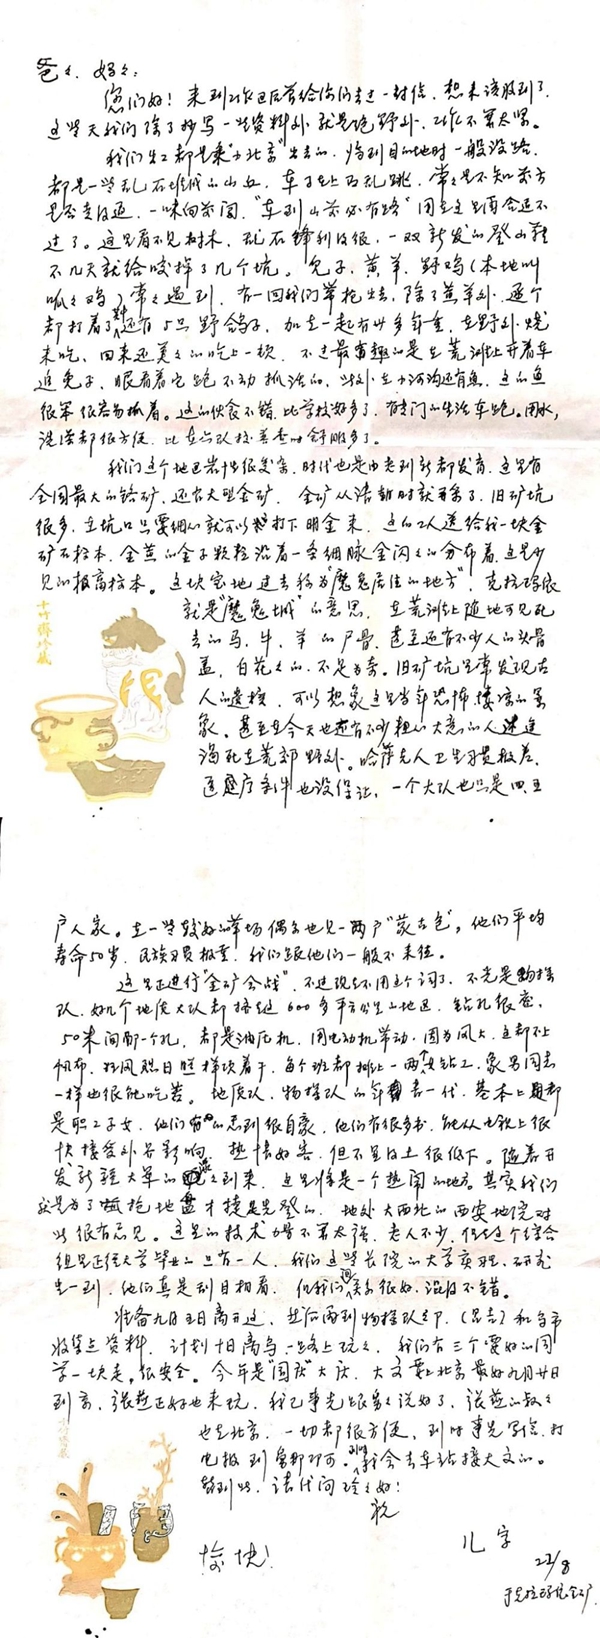 爸々、妈々：
您们好！来到工作区后曾给你们去过一封信，想来该收到了，
这些天我们除了抄写一些资料外，就是跑野外，工作不算太紧。
我们出工都是乘"小北京"出去的，临到目的地时一般没路，
都是一些乱石堆成的山丘，车子上下乱跳，常々是不知前方
是否走得通，一味向前闯，"车到山前必有路"用在这里再合适不
过了。这里看不见树木，乱石锋利得很，一双新发的登山鞋
不几天就给咬掉了几个坑。兔子、黄羊、野鸡（本地叫
呱々鸡）常々遇到，有一回我们带枪出去，除了黄羊外，逐个
都打着了，还有5只野鸽子，加在一起有廿多斤重，在野外烧
来吃，回来还美々的吃上一顿，不过最有趣的是在荒滩上开着车
追兔子，眼看着它跑不动抓活的，此外在小河沟还有鱼，这的鱼
很笨很容易抓着。这的伙食不错，比学校好多了，有专门的生活车跑。用水，
洗澡都很方便，比在分队校普查时舒服多了。
我们这个地区岩性很复杂，时代也是由老到新都发育，这里有
全国最大的铬矿，还有大型金矿，金矿从清朝时就开采了，旧矿坑
很多，在坑口只要细心就可以打下明金来，这的工人送给我一块金
矿石标本，金黄的金子颗粒沿着一条细脉金闪々的分布着，这是少
见的极高标本。这块宝地过去称为"魔鬼居住的地方"，克拉玛依
就是"魔鬼城"的意思，在荒滩上随地可见死
去的马、牛、羊的尸骨，甚至还有不少人的头骨
盖，白花々的，不足为奇。旧矿坑里常发现古
人的遗核，可以想象这里当年恐怖、凄凉的景
象。甚至在今天也还有不少粗心大意的人迷途
渴死在荒郊野外。哈萨克人卫生习惯极差，
医疗条件也没保证，一个大队也只是四、五
户人家。在一些较好的草场偶々也见一两户"蒙古包"，他们平均
寿命50岁，民族习惯极重，我们跟他们一般不来往。
这里正进行"金矿会战"，不过现在不用这个词了，不光是物探
队，好几个地质大队都挤进这600多平方公里山地区，钻孔很密，
50米间即一个孔，都是油压机，用电动机带动，因为风大，连都不上
帆布，狂风烈日照样顶着干，每个班都排上一两个女钻工，象男同志
一样也很能吃苦。地质队、物探队的年青一代，基本上都
是职工子女，他们感到很自豪，他们有很多书，能从电视上很
快接受外界影响，热情好客，但不是得上很低下。随着开
发新疆大军的到来，这里将是一个热闹的地方。其实我们
就是为了抢地盘才捷足先登的，地处大西北的西安地院对
此很有意见。这里的技术力量不算太强，老人不少，但在这个综合
组里正经大学毕业的只有一人，我们这些长院的大学实习、研究
生一到，他们真是刮目相看，但我们关系很好，混得不错。
准备九月五日离开这，然后再到物探队部（昌吉）和乌市
收集点资料，计划十日离乌，一路上玩々，我们有三个要好的同
学一块走，很安全。今年是"国庆"大庆，大文要上北京最好九月廿日
到京，张燕正好也来玩，我已事先跟家々说好了，张燕的叔々
也在北京，一切都很方便，到时事先写信、打
电报到鲁那即可，到时我会去车站接大文的。
暂到此，请代问玲々好！
祝
愉快！
儿 字
22/8
于克拉玛依金矿
十竹斋珍藏